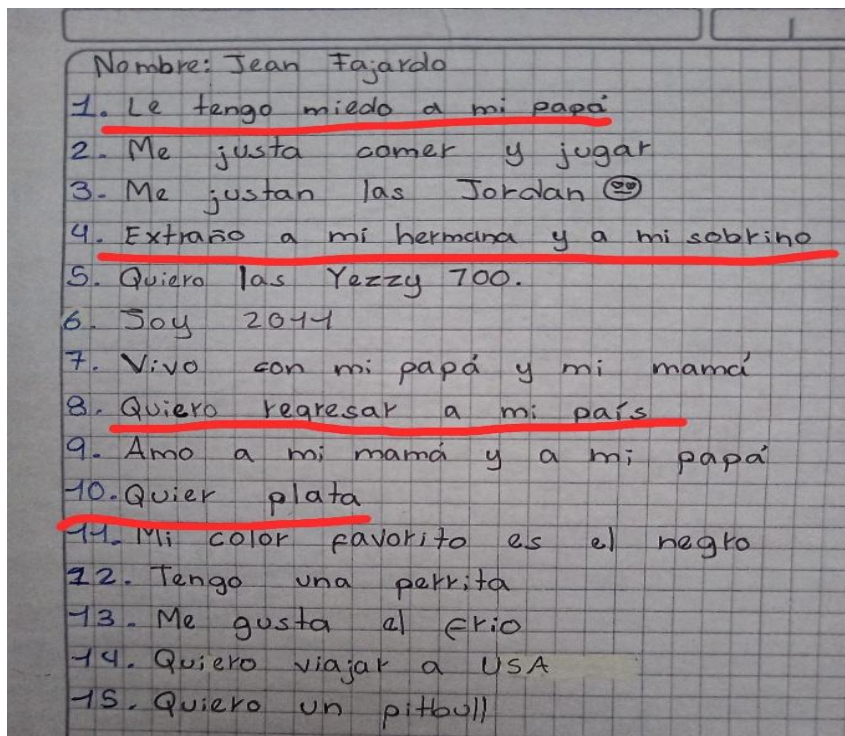 Nombre: Jean Fajardo
1. Le tengo miedo a mi papá
2. Me justa comer y jugar
3. Me justan las Jordan
4. Extraño a mi hermana y a mi sobrino
5. Quiero las Yezzy 700.
6. Soy 2011
7. Vivo con mi papá y mi mamá
8. Quiero regresar a mi país
9. Amo a mi mamá y a mi papá
10. Quier plata
11. Mi color favorito es el negro
12. Tengo una perrita
13. Me gusta el frio
14. Quiero viajar a USA
15. Quiero un pitbull